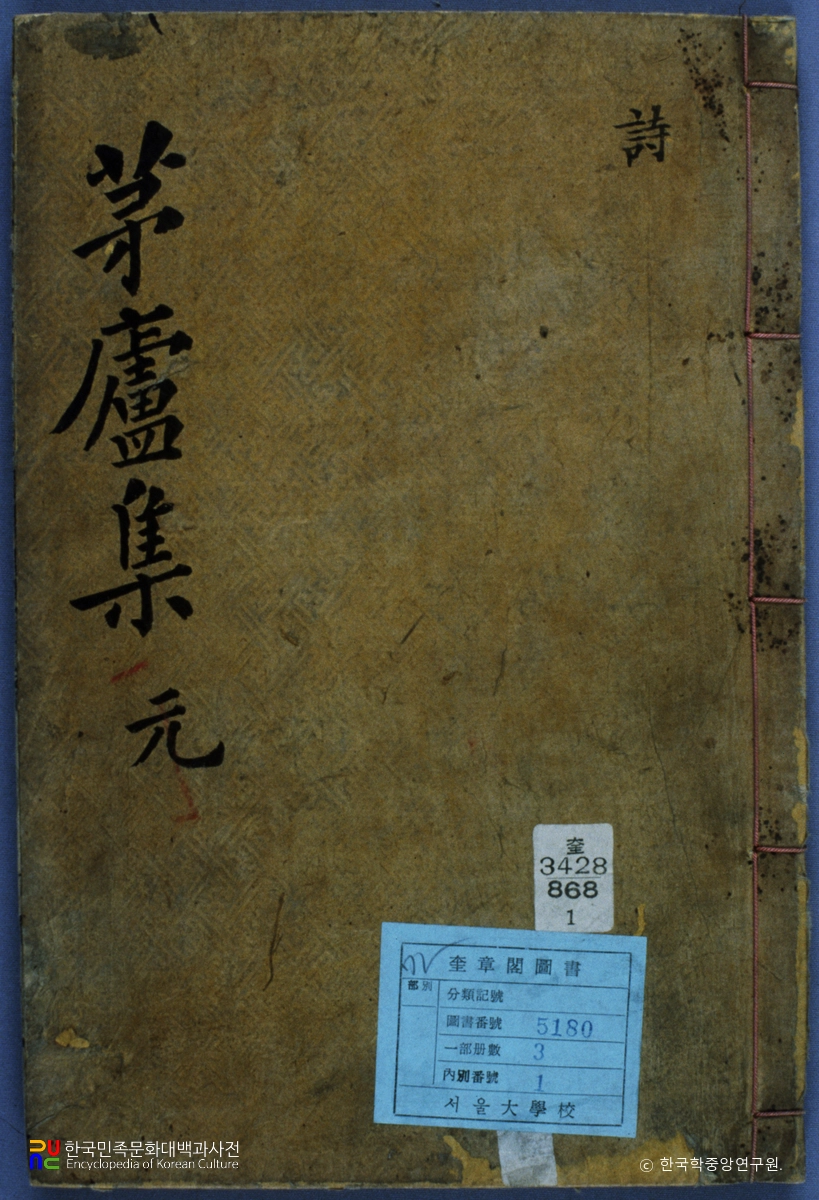 詩
茅廬集 元
奎
3428
868
1
奎章閣圖書
部別
分類記號
圖書番號 5180
一部册數 3
內別番號 1
서울大學校
한국민족문화대백과사전
Encyclopedia of Korean Culture
ⓒ 한국학중앙연구원.